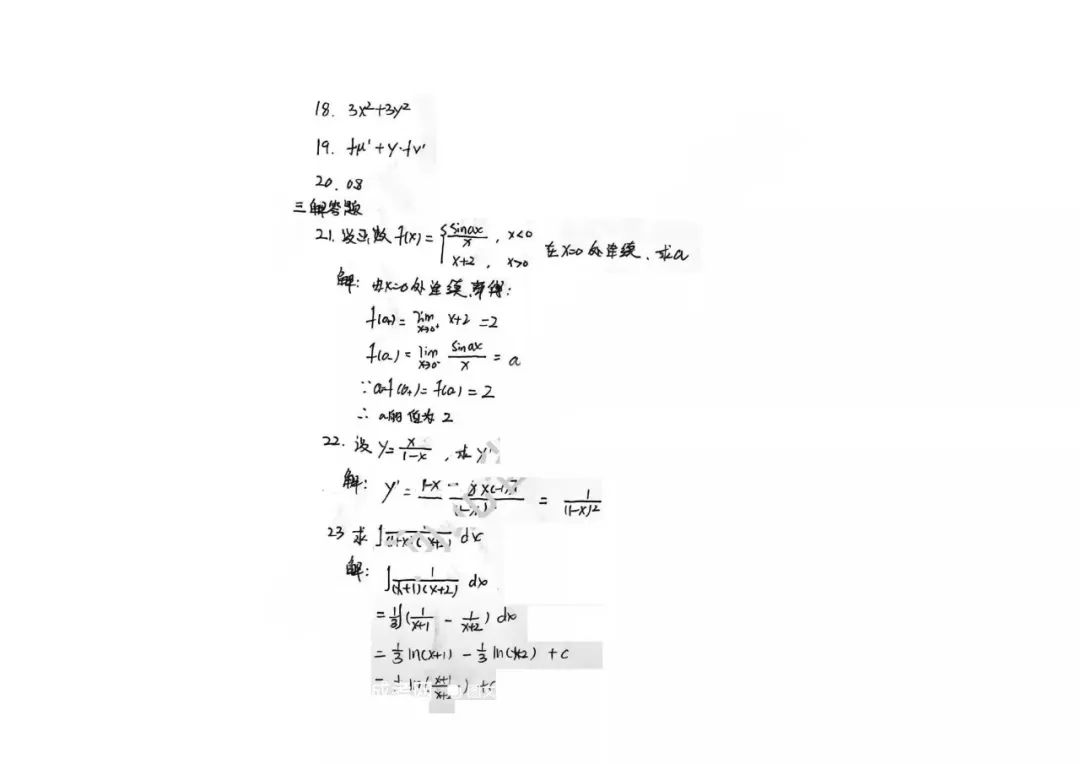 18. 3x²+3y²
19. fμ'+y·fv'
20. 08
三 解答题
21. 设函数 f(x) = { sinax/x , x<0
x+2 , x>0 在x=0处连续, 求a
解: 由x=0处连续,
f(0+) = lim x→0+ x+2 =2
f(0-) = lim x→0- sinax/x = a
∵ a=f(0+) = f(0-) = 2
∴ a的值为 2
22. 设 y= x/(1-x) , 求 y'
解: y' = = 1/(1-x)²
23 求 ∫ dx
解: ∫ 1/((x+1)(x+2)) dx
= 1/3 ∫( 1/(x+1) - 1/(x+2) ) dx
= 1/3 ln(x+1) - 1/3 ln(x+2) +c
成考